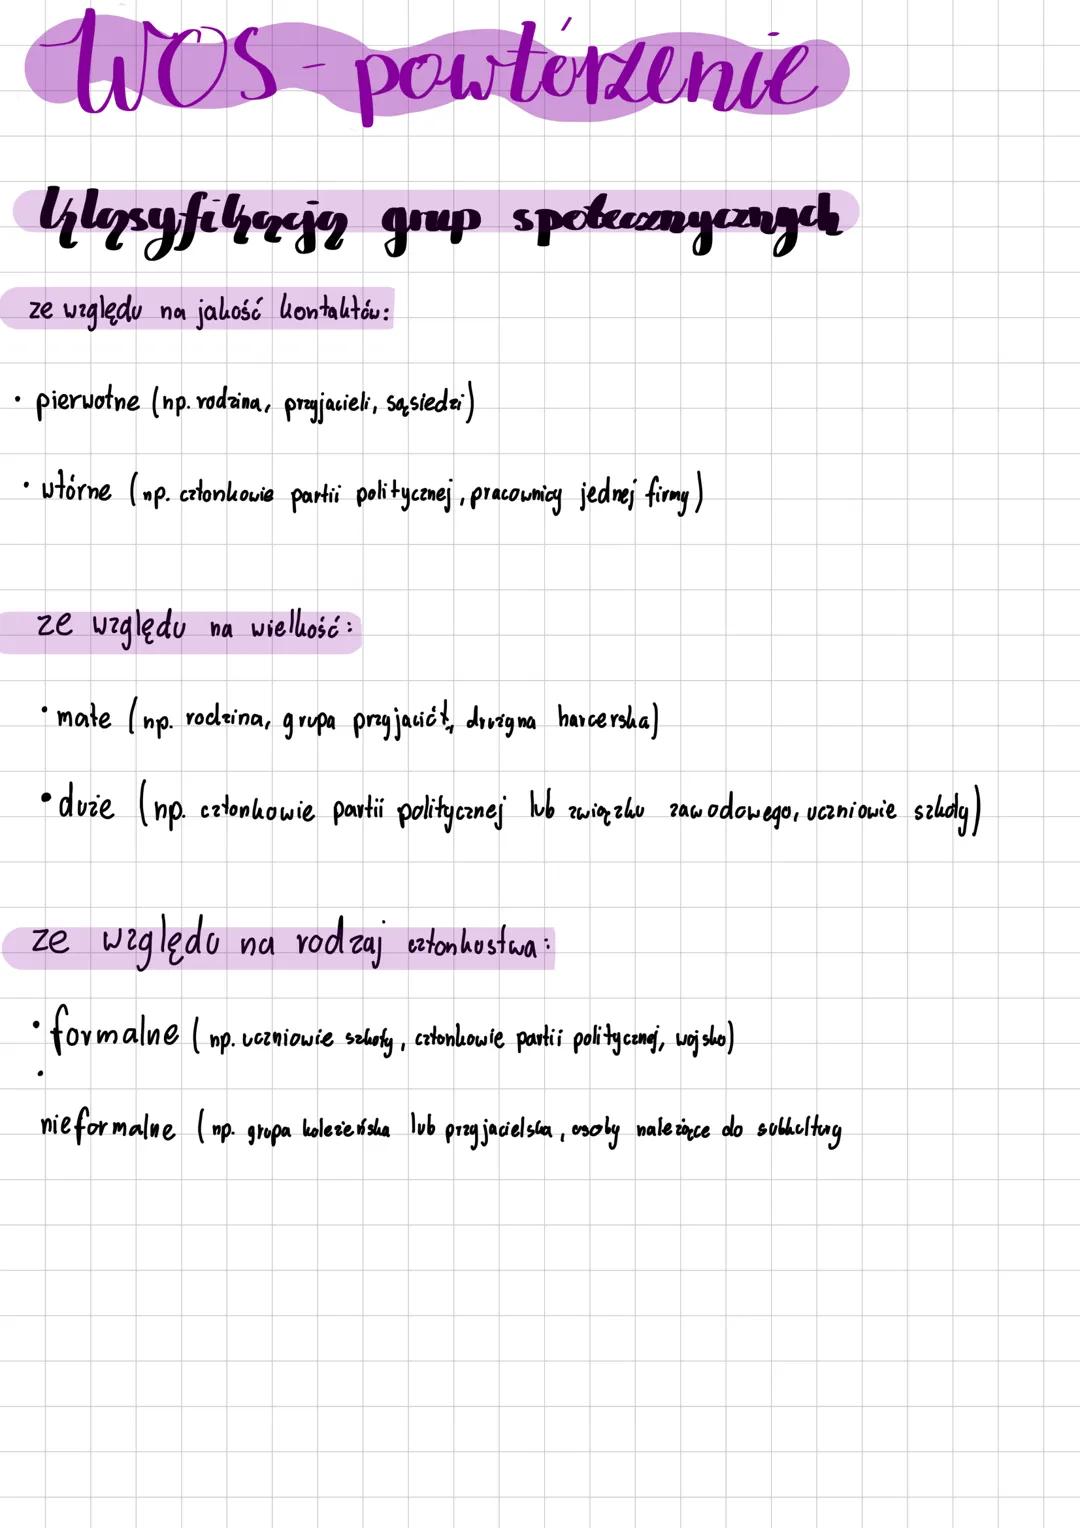 WOS - powtórzenie
klasyfikacja grup społecznycznych
ze względu na jakość kontaktów:
• pierwotne (np. rodzina, przyjacieli, sąsiedzi)
• wtórne (np. członkowie partii politycznej, pracownicy jednej firmy)
ze względu na wielkość:
• małe (np. rodzina, grupa przyjaciół, drużyna harcerska)
• duże (np. członkowie partii politycznej lub związku zawodowego, uczniowie szkoły)
ze względu na rodzaj członkostwa:
• formalne (np. uczniowie szkoły, członkowie partii politycznej, wojsko)
•
nieformalne (np. grupa koleżeńska lub przyjacielska, osoby należące do subkultury